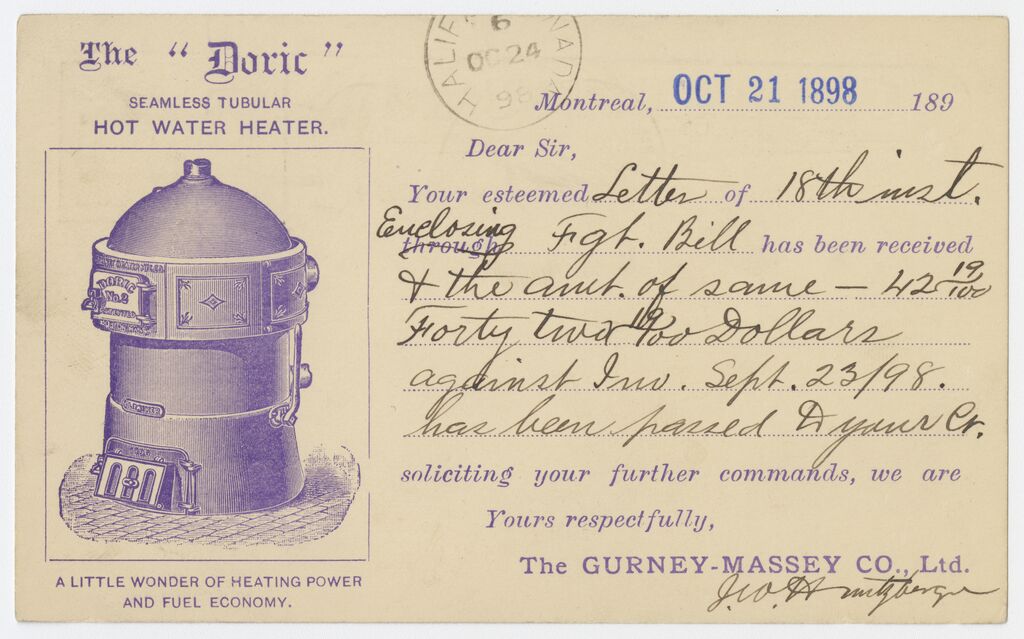 The "Doric"
SEAMLESS TUBULAR
HOT WATER HEATER.
DORIC
No. 2
PATENTED
A LITTLE WONDER OF HEATING POWER
AND FUEL ECONOMY.
HALIF NADA
6
OC 24
98
Montreal, OCT 21 1898 189
Dear Sir,
Your esteemed Letter of 18th inst.
Enclosing
through Fgt. Bill has been received
& the amt. of same — 42 19/100
Forty two 19/00 Dollars
against Inv. Sept. 23/98.
has been passed to your Cr.
soliciting your further commands, we are
Yours respectfully,
The GURNEY-MASSEY CO., Ltd.